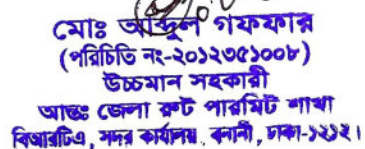 মোঃ আব্দুল গফফার
(পরিচিতি নং-২০১২৩৫১০০৮)
উচ্চমান সহকারী
আন্তঃ জেলা রুট পারমিট শাখা
বিআরটিএ, সদর কার্যালয়, বনানী, ঢাকা-১২১২।